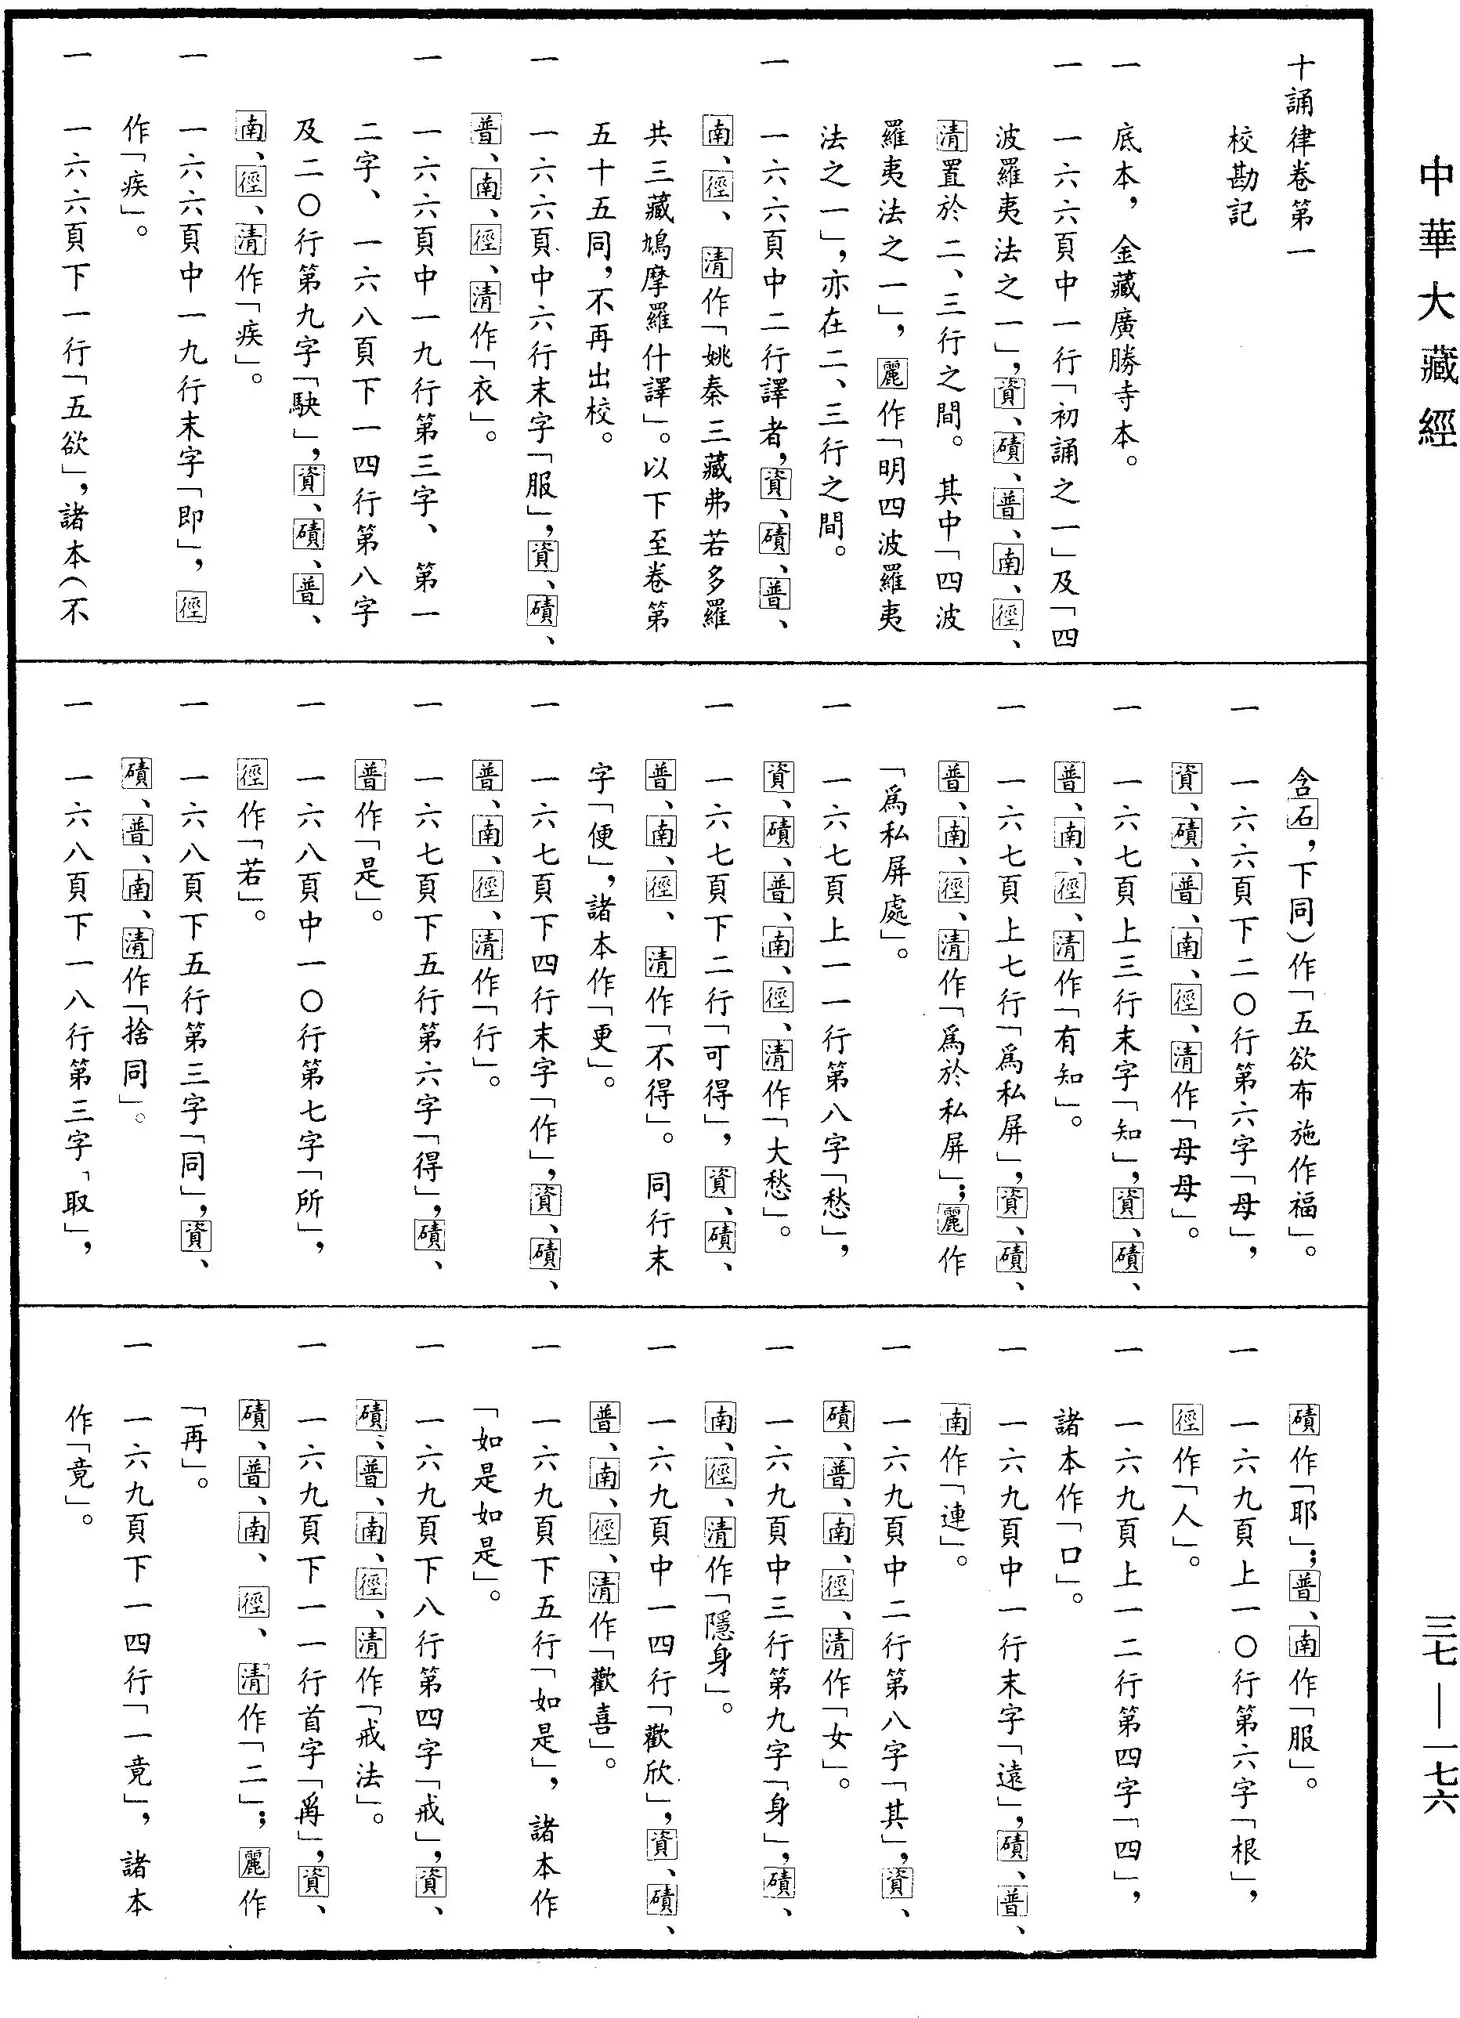 中華大藏經
十誦律卷第一
校勘記
一 底本，金藏廣勝寺本。
一 一六六頁中一行「初誦之一」及「四
波羅夷法之一」，資、磧、普、南、徑、
清置於二、三行之間。其中「四波
羅夷法之一」，麗作「明四波羅夷
法之一」，亦在二、三行之間。
一 一六六頁中二行譯者，資、磧、普、
南、徑、清作「姚秦三藏弗若多羅
共三藏鳩摩羅什譯」。以下至卷第
五十五同，不再出校。
一 一六六頁中六行末字「服」，資、磧、
普、南、徑、清作「衣」。
一 一六六頁中一九行第三字、第一
二字、一六八頁下一四行第八字
及二〇行第九字「駃」，資、磧、普、
南、徑、清作「疾」。
一 一六六頁中一九行末字「即」，徑
作「疾」。
一 一六六頁下一行「五欲」，諸本（不
含石，下同）作「五欲布施作福」。
一 一六六頁下二〇行第六字「母」，
資、磧、普、南、徑、清作「母母」。
一 一六七頁上三行末字「知」，資、磧、
普、南、徑、清作「有知」。
一 一六七頁上七行「爲私屏」，資、磧、
普、南、徑、清作「爲於私屏」；麗作
「爲私屏處」。
一 一六七頁上一一行第八字「愁」，
資、磧、普、南、徑、清作「大愁」。
一 一六七頁下二行「可得」，資、磧、
普、南、徑、清作「不得」。同行末
字「便」，諸本作「更」。
一 一六七頁下四行末字「作」，資、磧、
普、南、徑、清作「行」。
一 一六七頁下五行第六字「得」，磧、
普作「是」。
一 一六八頁中一〇行第七字「所」，
徑作「若」。
一 一六八頁下五行第三字「同」，資、
磧、普、南、清作「捨同」。
一 一六八頁下一八行第三字「取」，
磧作「耶」；普、南作「服」。
一 一六九頁上一〇行第六字「根」，
徑作「人」。
一 一六九頁上一二行第四字「四」，
諸本作「口」。
一 一六九頁中一行末字「遠」，磧、普、
南作「連」。
一 一六九頁中二行第八字「其」，資、
磧、普、南、徑、清作「女」。
一 一六九頁中三行第九字「身」，磧、
南、徑、清作「隱身」。
一 一六九頁中一四行「歡欣」，資、磧、
普、南、徑、清作「歡喜」。
一 一六九頁下五行「如是」，諸本作
「如是如是」。
一 一六九頁下八行第四字「戒」，資、
磧、普、南、徑、清作「戒法」。
一 一六九頁下一一行首字「爯」，資、
磧、普、南、徑、清作「二」；麗作
「再」。
一 一六九頁下一四行「一竟」，諸本
作「竟」。
三七—一七六